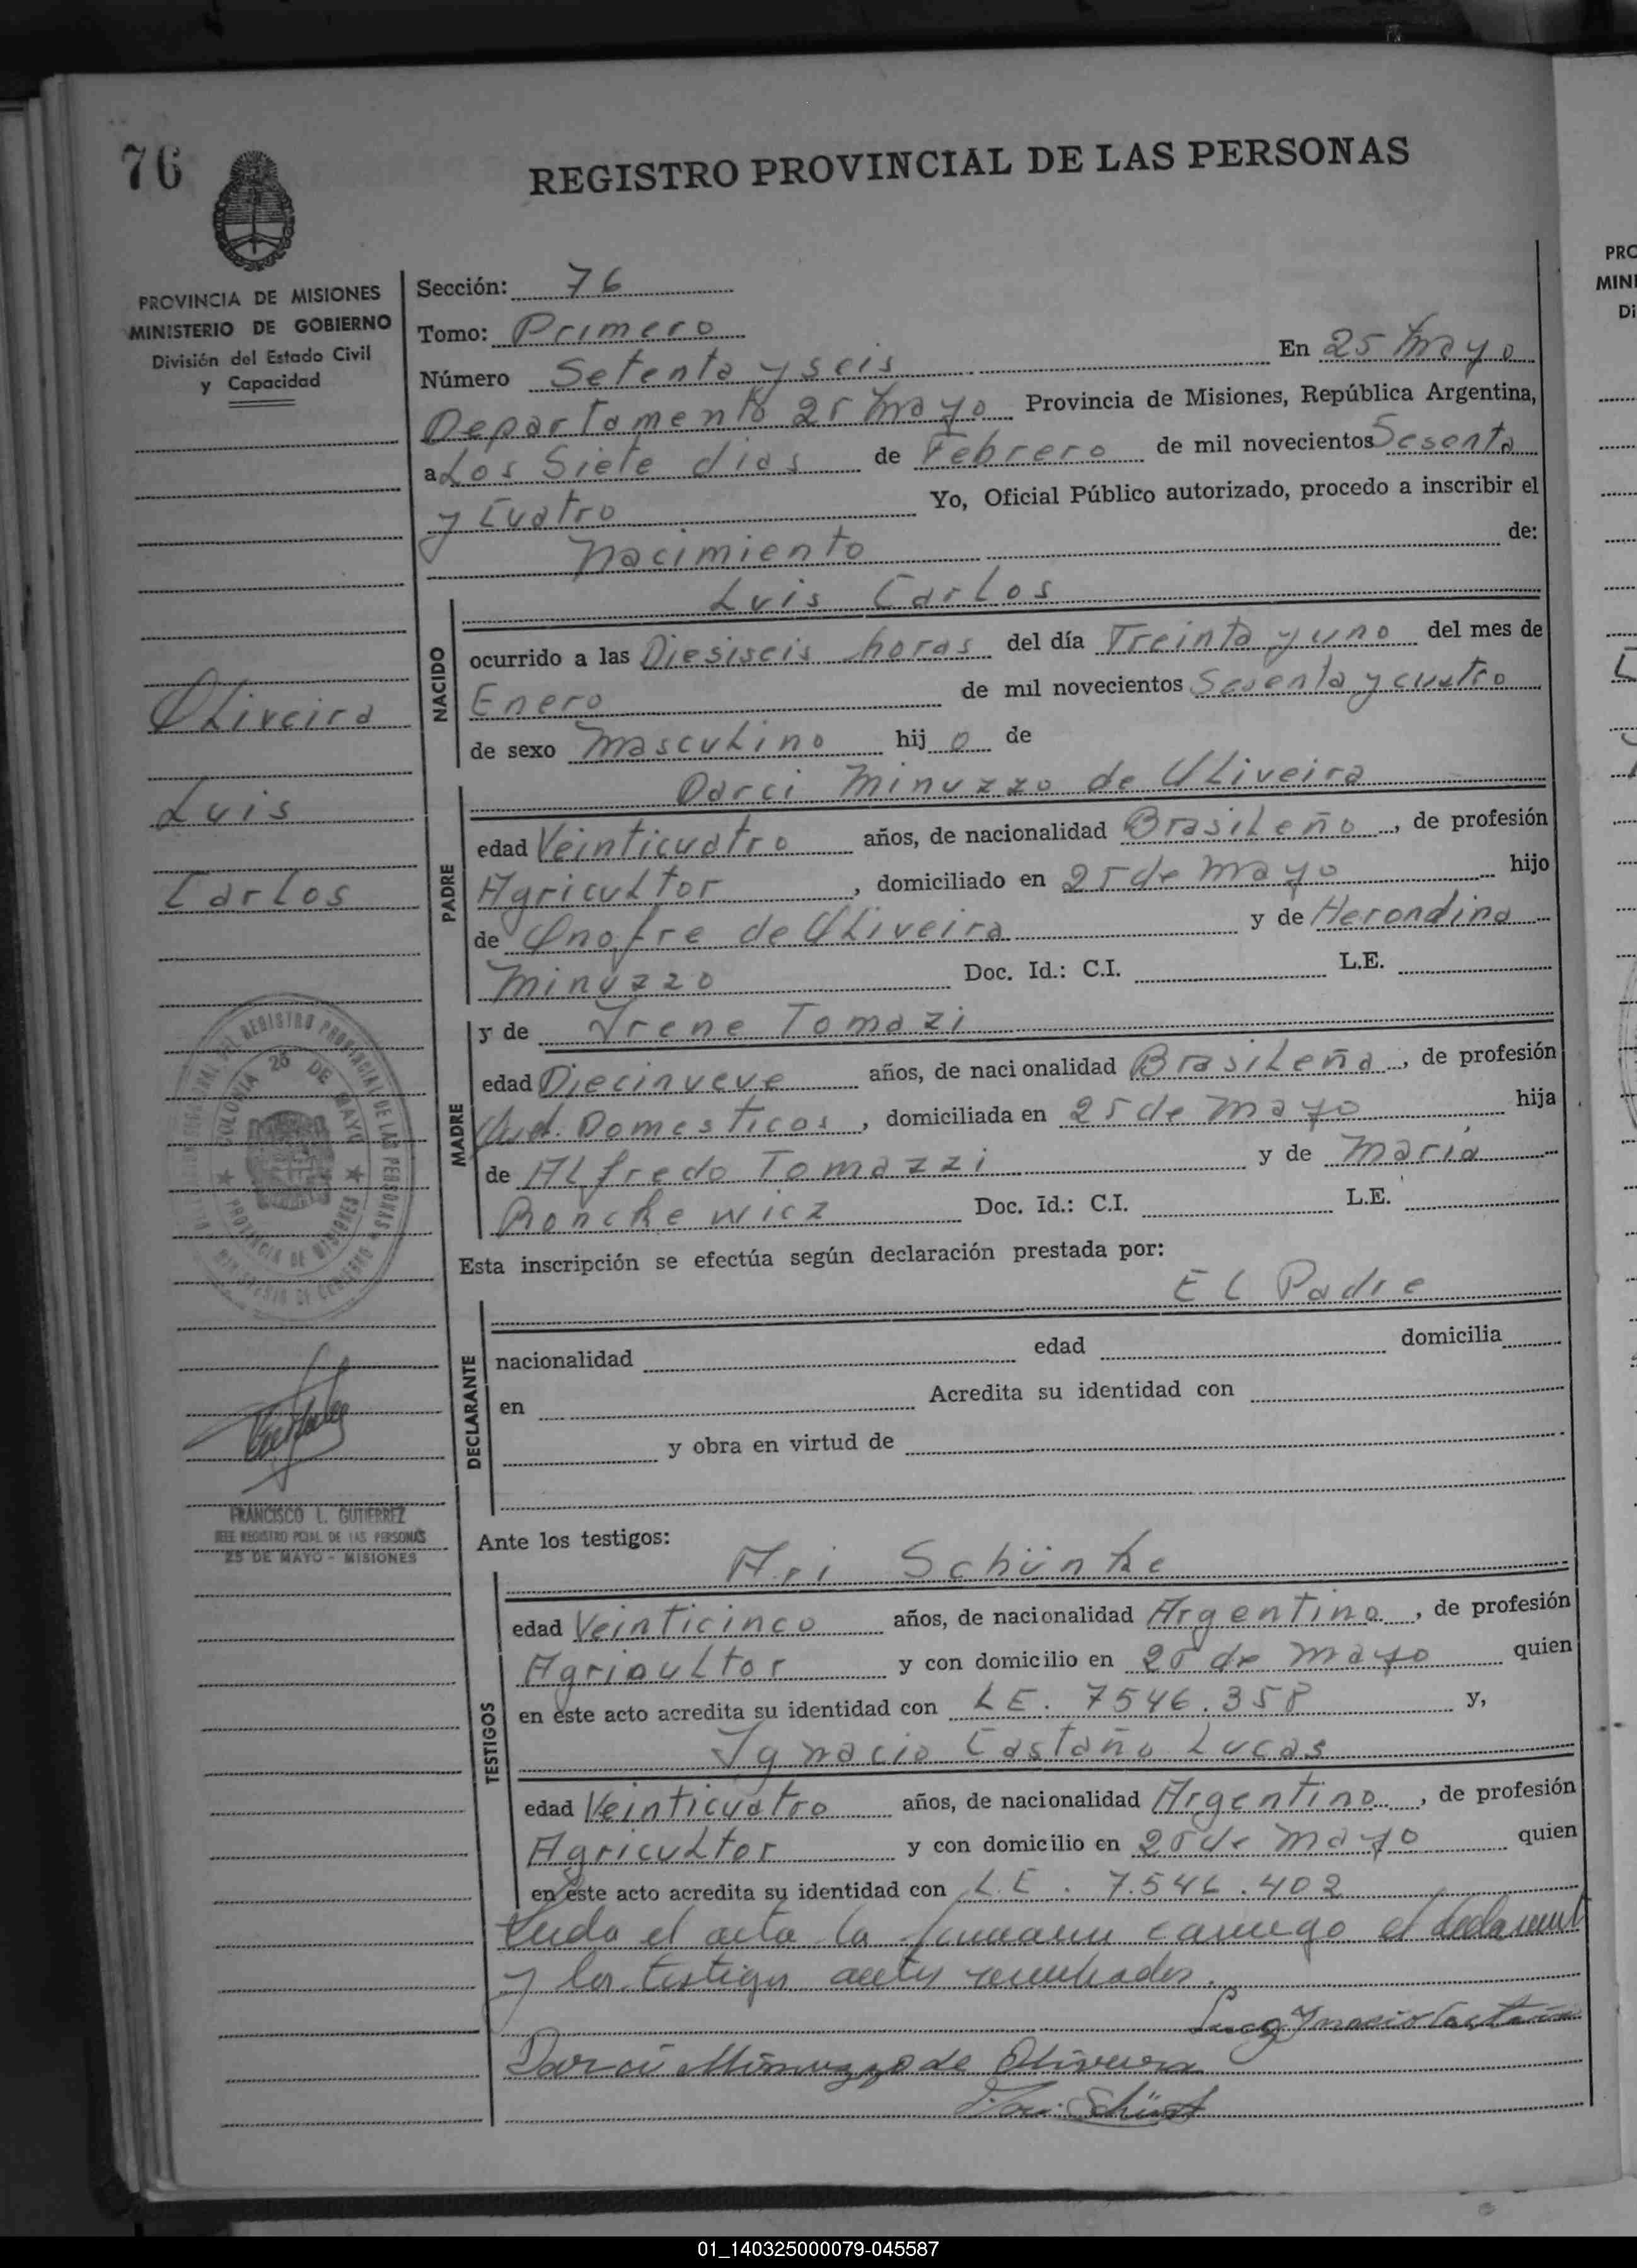 76
REGISTRO PROVINCIAL DE LAS PERSONAS
PROVINCIA DE MISIONES
MINISTERIO DE GOBIERNO
División del Estado Civil
y Capacidad
Sección: 76
Tomo: Primero
Número Setenta y seis En 25 Mayo
Departamento 25 Mayo Provincia de Misiones, República Argentina,
a Los Siete dias de Febrero de mil novecientos Sesenta
y Cuatro Yo, Oficial Público autorizado, procedo a inscribir el
Nacimiento de:
Luis Carlos
NACIDO
ocurrido a las Diesiseis horas del día Treinta y uno del mes de
Enero de mil novecientos Sesenta y cuatro
de sexo Masculino hijo de
Oliveira
Luis
Carlos
Darci Minuzzo de Oliveira
PADRE
edad Veinticuatro años, de nacionalidad Brasileño, de profesión
Agricultor, domiciliado en 25 de Mayo hijo
de Onofre de Oliveira y de Herondina
Minuzzo Doc. Id.: C.I. L.E.
MADRE
y de Irene Tomazi
edad Diecinueve años, de nacionalidad Brasileña, de profesión
Domesticos, domiciliada en 25 de Mayo hija
de Alfredo Tomazzi y de Maria
Ronchewicz Doc. Id.: C.I. L.E.
COLONIA 25 DE MAYO
PROVINCIA DE MISIONES
Esta inscripción se efectúa según declaración prestada por:
El Padre
DECLARANTE
nacionalidad edad domicilia
en Acredita su identidad con
y obra en virtud de
FRANCISCO L. GUTIERREZ
JEFE REGISTRO PCIAL DE LAS PERSONAS
25 DE MAYO - MISIONES
Ante los testigos:
Ari Schünke
TESTIGOS
edad Veinticinco años, de nacionalidad Argentino, de profesión
Agricultor y con domicilio en 25 de Mayo quien
en este acto acredita su identidad con L.E. 7546.358 y,
Ignacio Castaño Lucas
edad Veinticuatro años, de nacionalidad Argentino, de profesión
Agricultor y con domicilio en 25 de Mayo quien
en este acto acredita su identidad con L.E. 7.546.402
Leida el acta la firmaron conmigo el declarante
y los testigos antes nombrados.
Darci Minuzzo de Oliveira
01_140325000079-045587